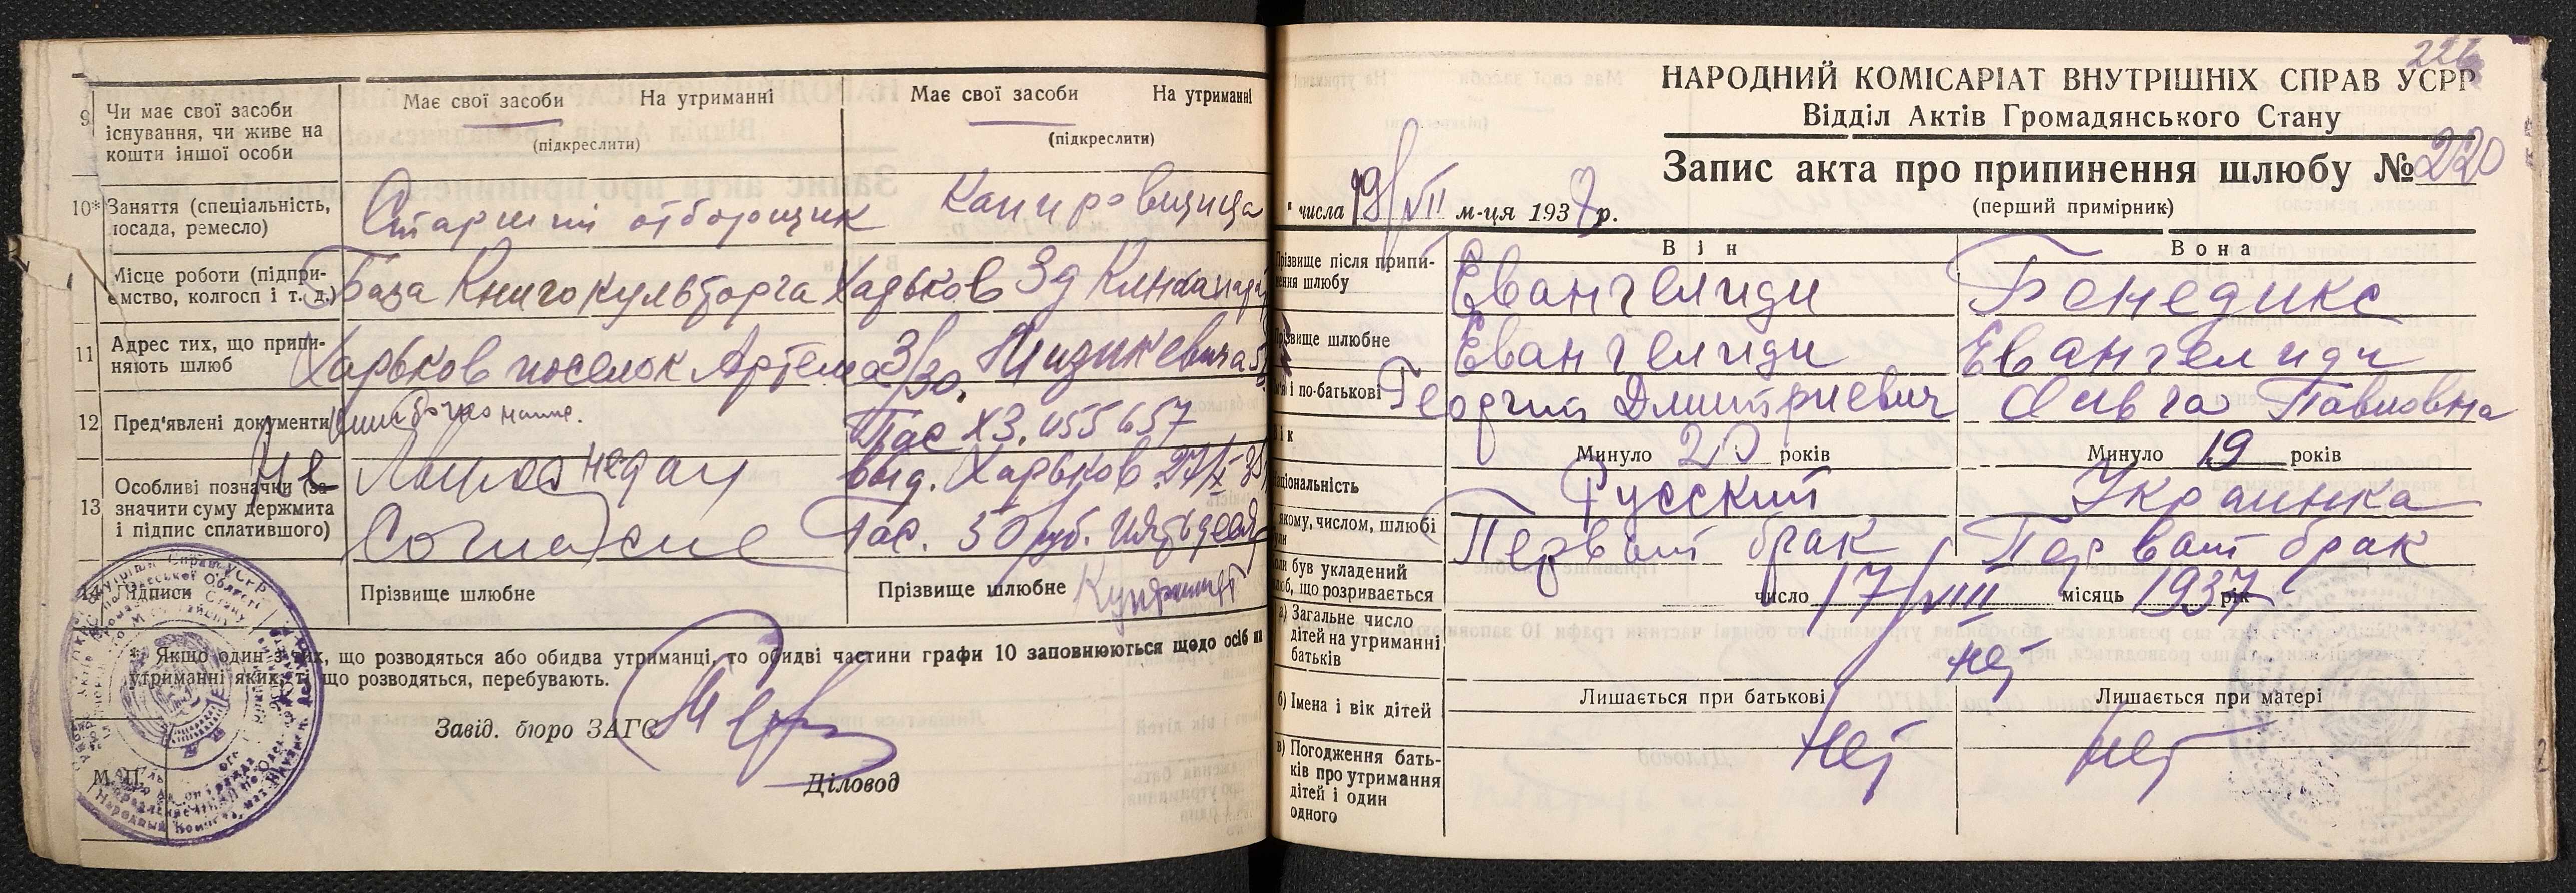 9
Чи має свої засоби існування, чи живе на кошти іншої особи
Має свої засоби На утриманні
(підкреслити)
Має свої засоби На утриманні
(підкреслити)
10* Заняття (спеціальність, посада, ремесло)
Старший отборщик
Копировщица
Місце роботи (підпри-
ємство, колгосп і т. д.)
База Книгокультторга
Харьков Зд
11 Адрес тих, що припи-
няють шлюб
Харьков поселок Артема 3/30.
12 Пред'явлені документи
Пас ХЗ. 055657
13 Особливі позначки (за-
значити суму держмита
і підпис сплатившого)
выд. Харьков. 27/X
Согласие
Гос. 50 руб.
14 Підписи
Прізвище шлюбне
Прізвище шлюбне
* Якщо один з тих, що розводяться або обидва утриманці, то обидві частини графи 10 заповнюються щодо осіб на
утриманні яких ті що розводяться, перебувають.
Завід. бюро ЗАГС
Діловод
М. П.
226
НАРОДНИЙ КОМІСАРІАТ ВНУТРІШНІХ СПРАВ УСРР
Відділ Актів Громадянського Стану
Запис акта про припинення шлюбу № 220
(перший примірник)
числа 19/VII м-ця 1938 р.
Він Вона
Прізвище після припи-
нення шлюбу
Евангелиди Бенедикс
Прізвище шлюбне
Евангелиди Евангелиди
Ім'я і по-батькові
Георгий Дмитриевич Ольга Павловна
Вік
Минуло 20 років Минуло 19 років
Національність
Русский Украинка
якому, числом, шлюбі
Первый брак Первый брак
Коли був укладений
шлюб, що розривається
число 17/VIII місяць 1937 рік
а) Загальне число
дітей на утриманні
батьків
нет
б) Імена і вік дітей
Лишається при батькові Лишається при матері
нет нет
в) Погодження бать-
ків про утримання
дітей і один
одного